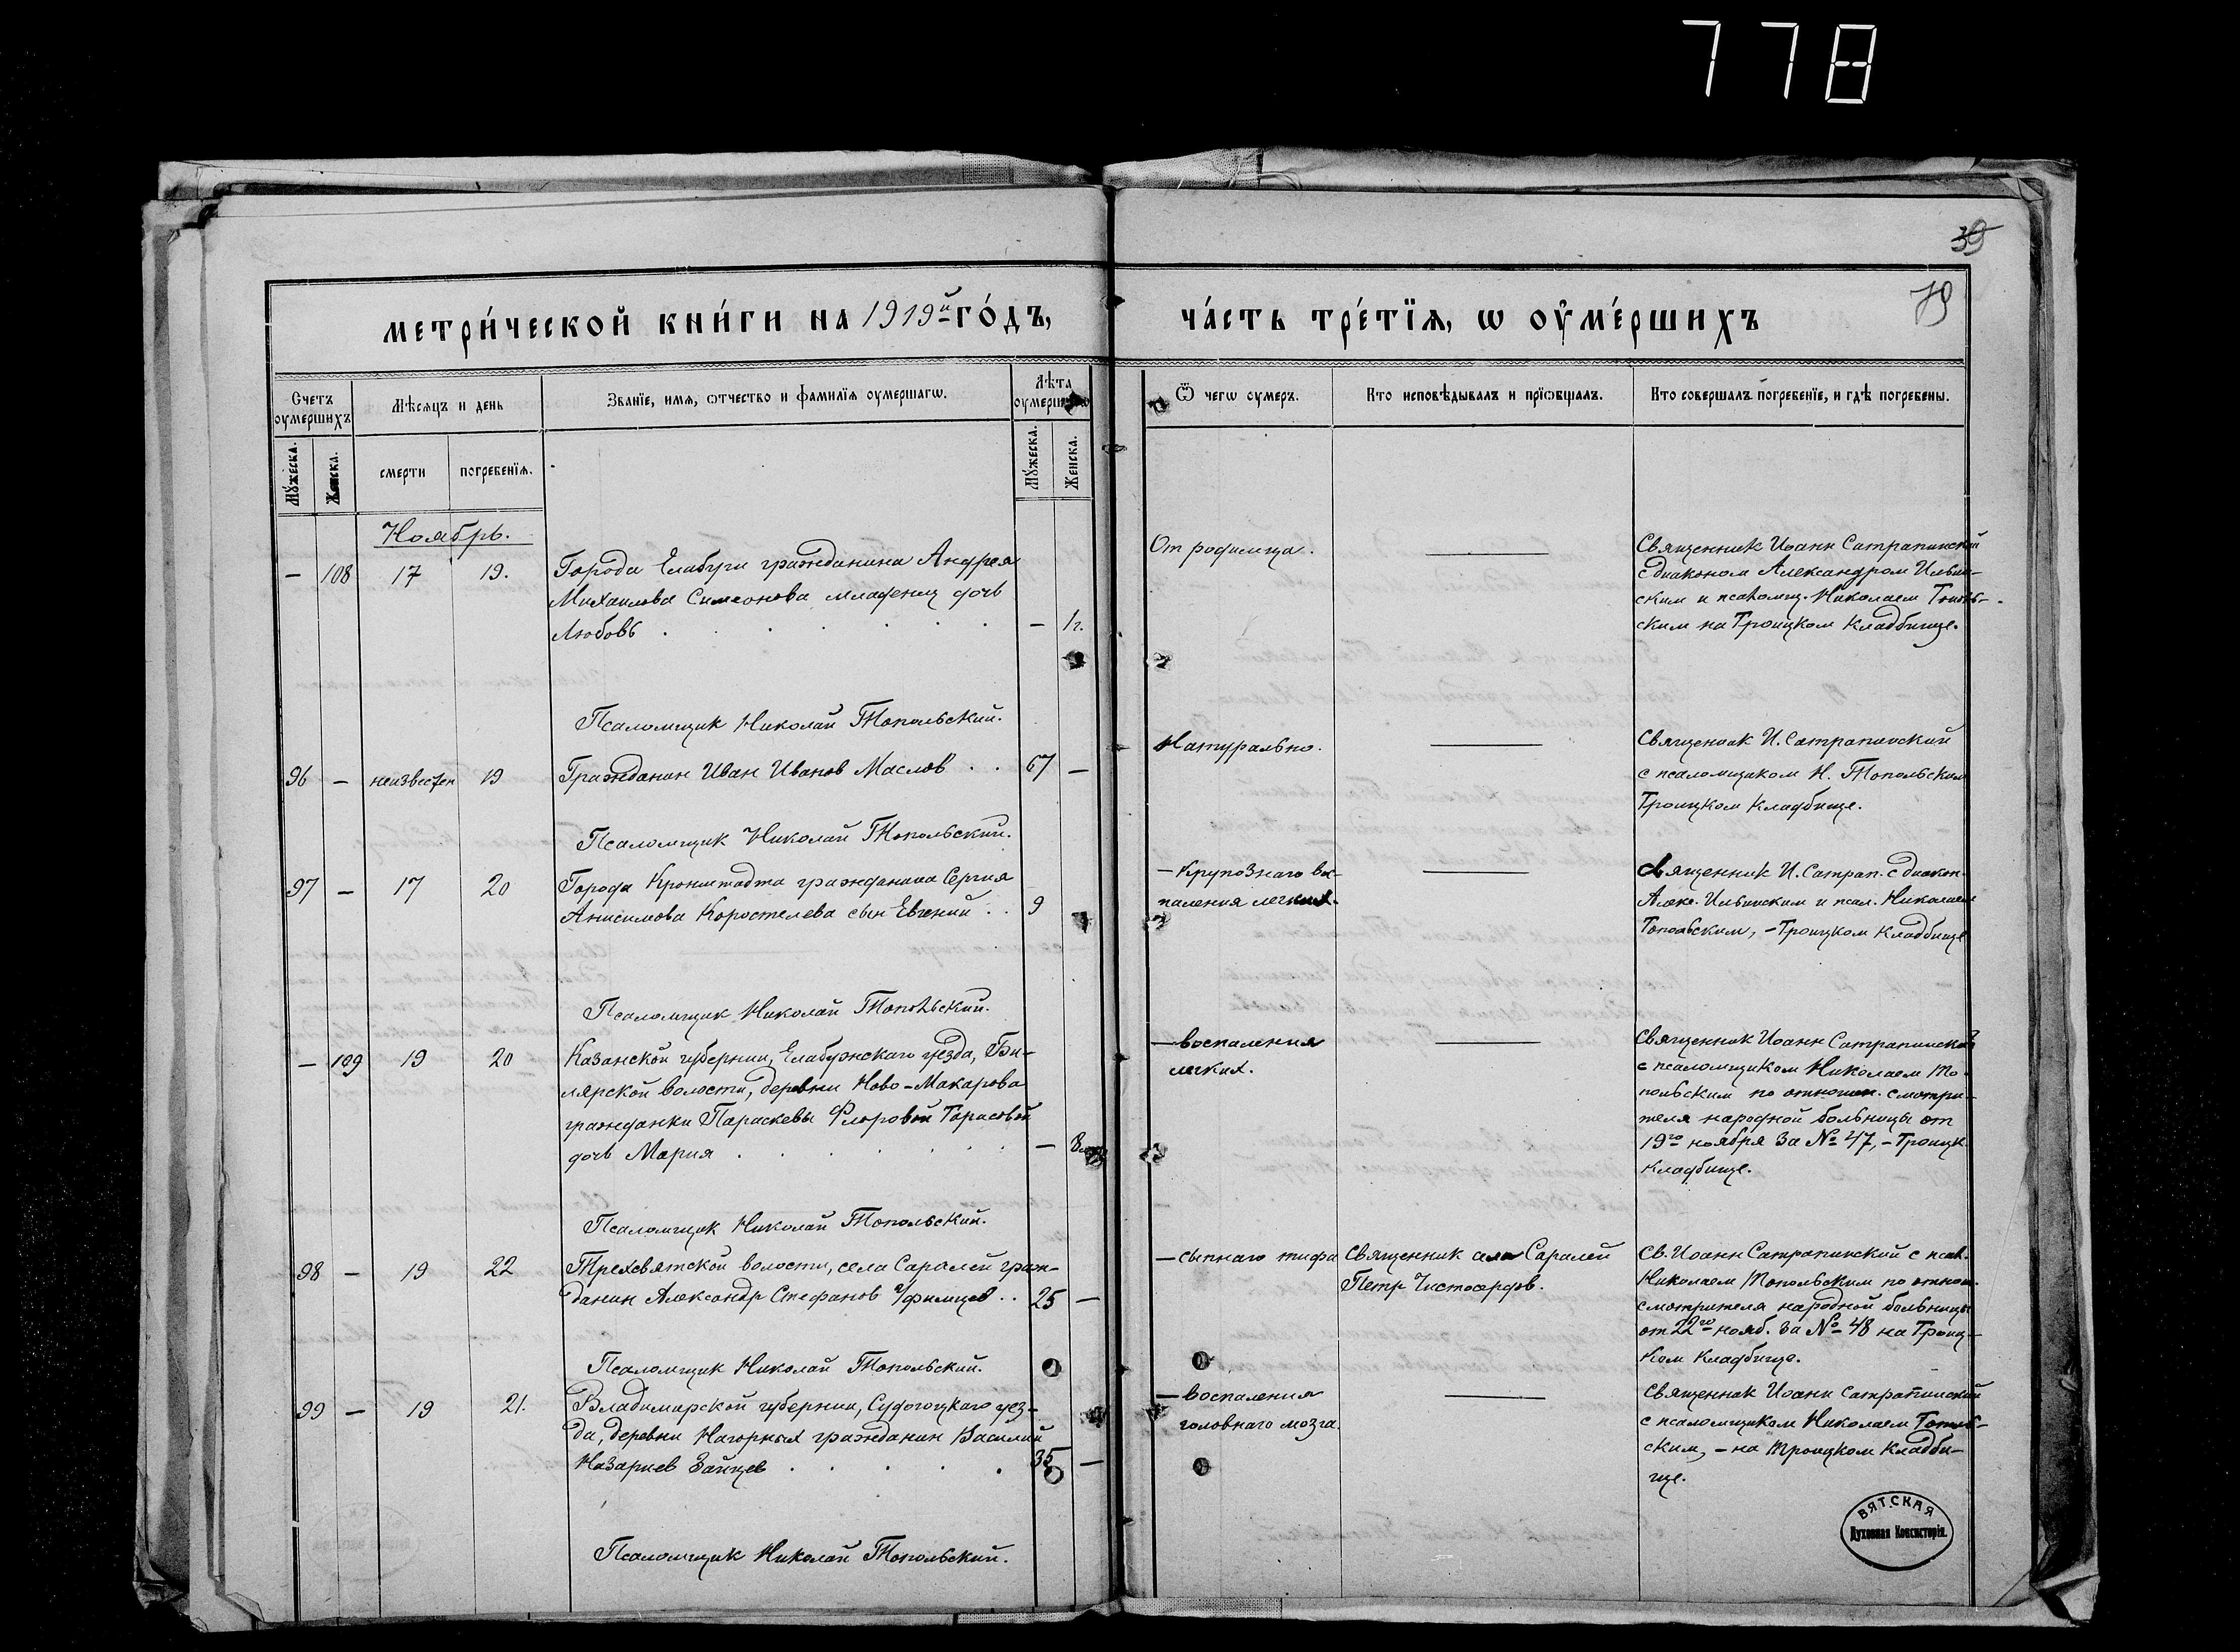 778
39
79
метри́ческой кни́ги на 1919й го́дъ,
ча́сть тре́тїѧ, ѡ оуме́ршихъ
Счетъ оумершихъ
Мѣсѧцъ и день
Званїе, имѧ, ѡтчество и фамилїѧ оумершагѡ.
Лѣта оумершагѡ
Ѿ чегѡ оумеръ.
Кто исповѣдывалъ и прїѡбщалъ.
Кто совершалъ погребенїе, и гдѣ погребены.
Мꙋжеска.
Женска.
смерти
погребенїѧ.
Мꙋжеска.
Женска.
Ноябрь.
— 108 17 19.
Города Елабуги гражданина Андрея
Михаилова Симеонова младенец дочь
Любовь . . . . . . — 1 г.
От родимца.
—
Священник Иоанн Сатрапинский
с диаконом Александром Ильин-
ским и псаломщ. Николаем Тополь-
ским на Троицком кладбище.
Псаломщик Николай Топольский.
96 — неизвестен 19
Гражданин Иван Иванов Маслов . . 67 —
Натурально.
—
Священник И. Сатрапинский
с псаломщиком Н. Топольским
Троицком кладбище.
Псаломщик Николай Топольский.
97 — 17 20
Города Кронштадта гражданина Сергия
Анисимова Коростелева сын Евгений . . 9
— Крупознаго вос-
паления легких.
—
Священник И. Сатрап. с диакон.
Алекс. Ильинским и псал. Николаем
Топольским, – Троицком кладбище
Псаломщик Николай Топольский.
— 109 19 20
Казанской губернии, Елабужскаго уезда, Би-
лярской волости, деревни Ново-Макарова
гражданки Параскевы Флоровой Тарасовой
дочь Мария . . . . . . — 8
— воспаления
легких.
—
Священник Иоанн Сатрапинский
с псаломщиком Николаем То-
польским по отношен. смотри-
теля народной больницы от
19го ноября за № 47, – Троицк.
кладбище.
Псаломщик Николай Топольский.
98 — 19 22
Трехсвятской волости, села Саралей граж-
данин Александр Стефанов Уфимцев . . 25 —
— сыпнаго тифа
Священник села Саралей
Петр Чистосердов.
Св. Иоанн Сатрапинский с псал.
Николаем Топольским по отнош.
смотрителя народной больницы
от 22го нояб. за № 48 на Троиц-
ком кладбище.
Псаломщик Николай Топольский.
99 — 19 21.
Владимирской губернии, Судогоцкаго уез-
да, деревни Нагорных гражданин Василий
Назариев Зайцев . . . . . 35 —
— воспаления
головнаго мозга.
—
Священник Иоанн Сатрапинский
с псаломщиком Николаем Тополь-
ским, – на Троицком кладби-
ще.
Псаломщик Николай Топольский.
ВЯТСКАЯ
Духовная Консисторія.